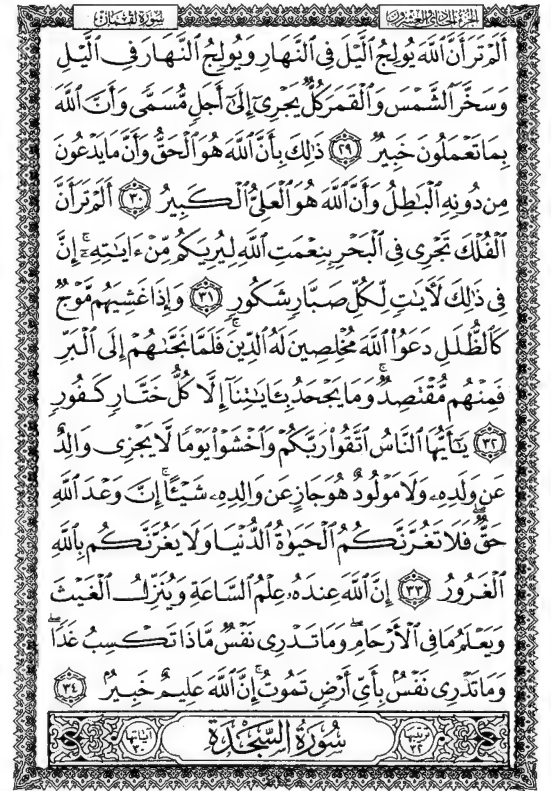 الجزء الحادي والعشرون
سورة لقمان
أَلَمْ تَرَ أَنَّ ٱللَّهَ يُولِجُ ٱلَّيْلَ فِى ٱلنَّهَارِ وَيُولِجُ ٱلنَّهَارَ فِى ٱلَّيْلِ
وَسَخَّرَ ٱلشَّمْسَ وَٱلْقَمَرَ كُلٌّ يَجْرِىٓ إِلَىٰٓ أَجَلٍ مُّسَمًّى وَأَنَّ ٱللَّهَ
بِمَا تَعْمَلُونَ خَبِيرٌ ٢٩ ذَٰلِكَ بِأَنَّ ٱللَّهَ هُوَ ٱلْحَقُّ وَأَنَّ مَا يَدْعُونَ
مِن دُونِهِ ٱلْبَٰطِلُ وَأَنَّ ٱللَّهَ هُوَ ٱلْعَلِىُّ ٱلْكَبِيرُ ٣٠ أَلَمْ تَرَ أَنَّ
ٱلْفُلْكَ تَجْرِى فِى ٱلْبَحْرِ بِنِعْمَتِ ٱللَّهِ لِيُرِيَكُم مِّنْ ءَايَٰتِهِۦٓ ۚ إِنَّ
فِى ذَٰلِكَ لَءَايَٰتٍ لِّكُلِّ صَبَّارٍ شَكُورٍ ٣١ وَإِذَا غَشِيَهُم مَّوْجٌ
كَٱلظُّلَلِ دَعَوُا۟ ٱللَّهَ مُخْلِصِينَ لَهُ ٱلدِّينَ فَلَمَّا نَجَّىٰهُمْ إِلَى ٱلْبَرِّ
فَمِنْهُم مُّقْتَصِدٌ ۚ وَمَا يَجْحَدُ بِـَٔايَٰتِنَآ إِلَّا كُلُّ خَتَّارٍ كَفُورٍ
٣٢ يَٰٓأَيُّهَا ٱلنَّاسُ ٱتَّقُوا۟ رَبَّكُمْ وَٱخْشَوْا۟ يَوْمًا لَّا يَجْزِى وَالِدٌ
عَن وَلَدِهِۦ وَلَا مَوْلُودٌ هُوَ جَازٍ عَن وَالِدِهِۦ شَيْـًٔا ۚ إِنَّ وَعْدَ ٱللَّهِ
حَقٌّ ۖ فَلَا تَغُرَّنَّكُمُ ٱلْحَيَوٰةُ ٱلدُّنْيَا وَلَا يَغُرَّنَّكُم بِٱللَّهِ
ٱلْغَرُورُ ٣٣ إِنَّ ٱللَّهَ عِندَهُۥ عِلْمُ ٱلسَّاعَةِ وَيُنَزِّلُ ٱلْغَيْثَ
وَيَعْلَمُ مَا فِى ٱلْأَرْحَامِ ۖ وَمَا تَدْرِى نَفْسٌ مَّاذَا تَكْسِبُ غَدًا ۖ
وَمَا تَدْرِى نَفْسٌۢ بِأَىِّ أَرْضٍ تَمُوتُ ۚ إِنَّ ٱللَّهَ عَلِيمٌ خَبِيرٌۢ ٣٤
ترتيبها ٣٢
سُورَةُ السَّجْدَةِ
آياتها ٣٠